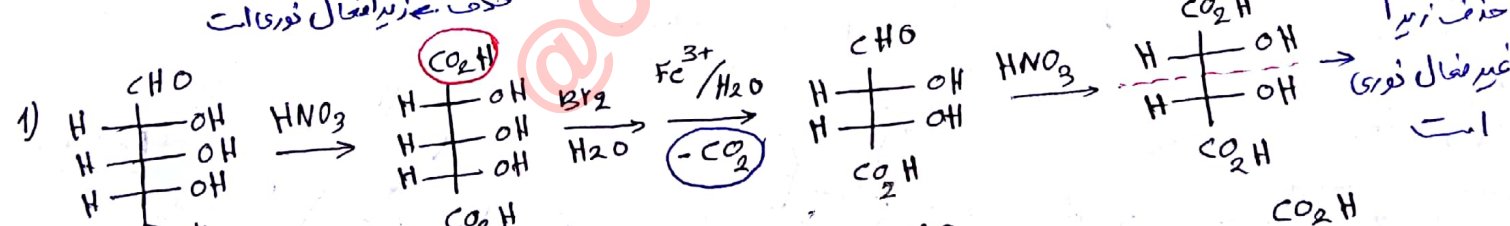 حذف زیرا فعال نوری است
1) CHO H OH H OH H OH
HNO3
CO2H H OH H OH H OH CO2H
Br2 H2O
Fe3+/H2O - CO2
CHO H OH H OH CO2H
HNO3
CO2H H OH H OH CO2H
حذف زیرا
غیر فعال نوری
است
CO2H